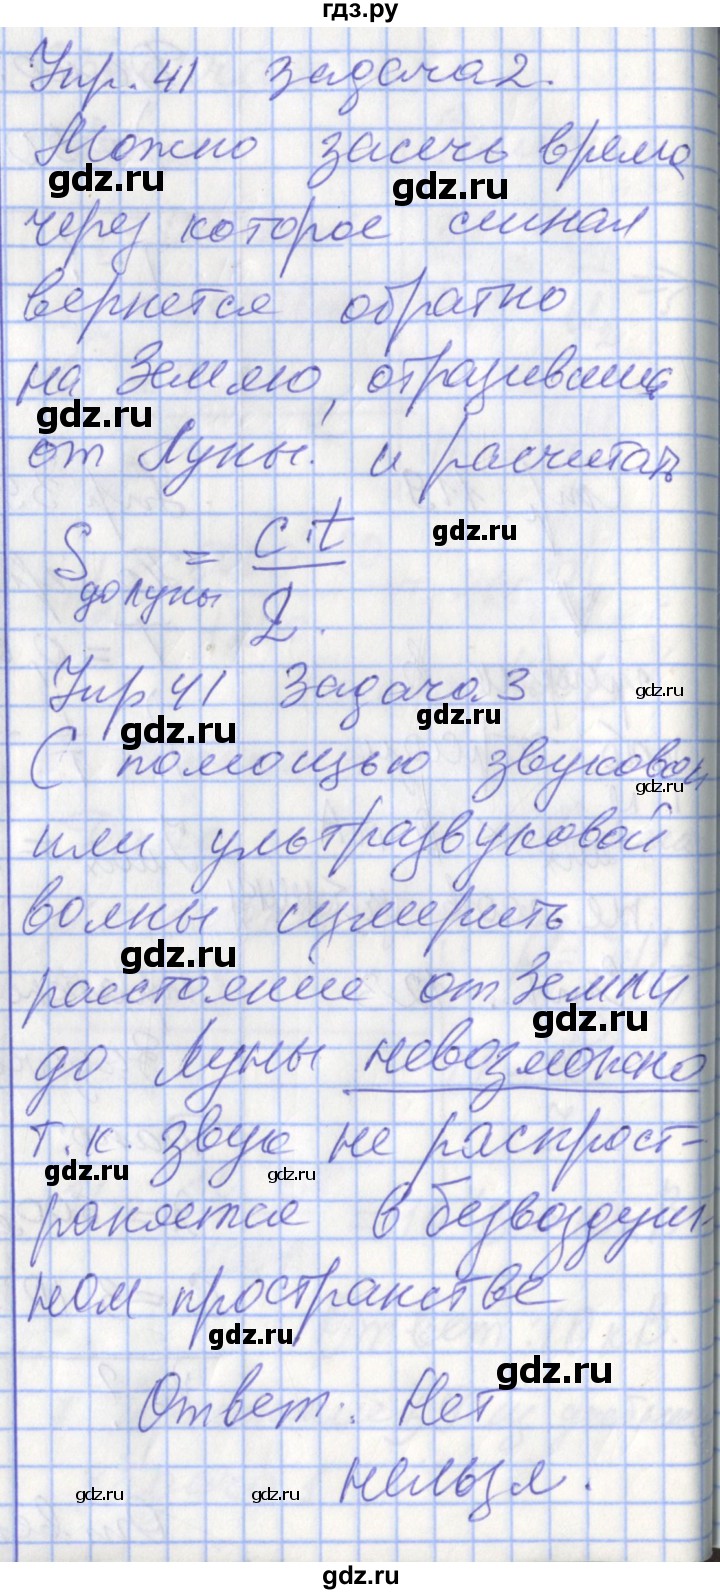 гдз.ру
Упр. 41 задача 2.
Можно засечь время
gdz.ru gdz.ru
через которое сигнал
вернется обратно
на Землю, отразившись
gdz.ru
от Луны! и расчитать
gdz.ru
S до луны = c·t / 2.
gdz.ru
Упр 41 Задача 3
gdz.ru gdz.ru
С помощью звуковой
gdz.ru
или ультразвуковой
волны измерить
gdz.ru
расстояние от Земли
gdz.ru
до Луны невозможно
т.к. звук не распрост-
gdz.ru gdz.ru
раняется в безвоздуш-
ном пространстве
gdz.ru
gdz.ru
Ответ: Нет
нельзя.
gdz.ru gdz.ru
gdz.ru